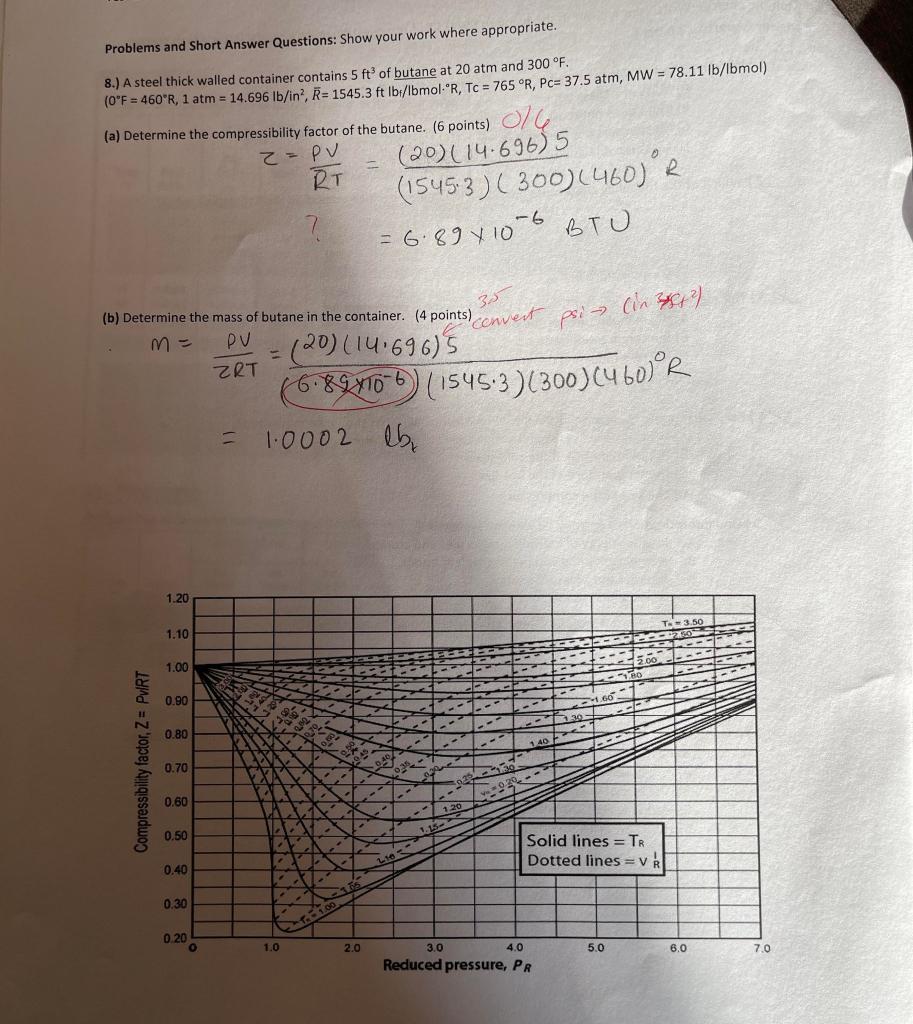 Problems and Short Answer Questions: Show your work where appropriate.
8.) A steel thick walled container contains 5 ft³ of butane at 20 atm and 300 °F.
(0°F = 460°R, 1 atm = 14.696 lb/in², R̅= 1545.3 ft lbf/lbmol·°R, Tc = 765 °R, Pc= 37.5 atm, MW = 78.11 lb/lbmol)
(a) Determine the compressibility factor of the butane. (6 points) 0/6
Z = PV/RT = (20)(14.696)5/(1545.3)(300)(460)°R
?
= 6.89 x 10⁻⁶ BTU
3.5
(b) Determine the mass of butane in the container. (4 points) convert psi → (in
m = PV/ZRT = (20)(14.696)5/(6.89x10⁻⁶)(1545.3)(300)(460)°R
= 1.0002 lb
1.20
1.10
1.00
0.90
0.80
0.70
0.60
0.50
0.40
0.30
0.20
Compressibility factor, Z = Pv/RT
TR = 3.50
2.50
2.00
1.80
1.60
1.30
1.40
1.30
1.20
1.15
1.10
1.05
TR = 1.00
0.45
0.40
0.35
0.30
0.25
vR = 0.20
Solid lines = TR
Dotted lines = v R
0 1.0 2.0 3.0 4.0 5.0 6.0 7.0
Reduced pressure, PR